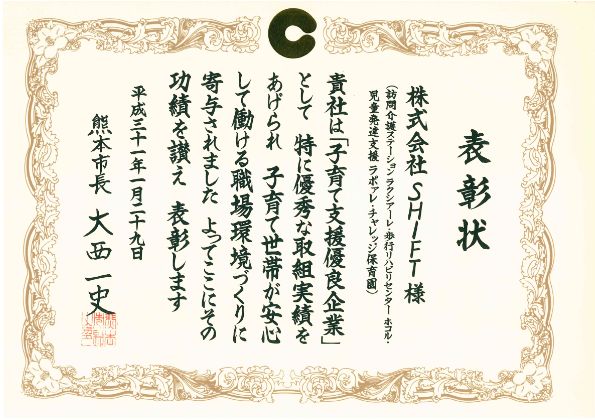 表彰状
株式会社SHIFT様
(訪問介護ステーション ラクシアーレ・歩行リハビリセンター ホコル・
児童発達支援 ラポァレ・チャレッジ保育園)
貴社は「子育て支援優良企業」
として 特に優秀な取組実績を
あげられ 子育て世帯が安心
して働ける職場環境づくりに
寄与されました よってここにその
功績を讃え 表彰します
平成三十一年一月二十九日
熊本市長 大西一史